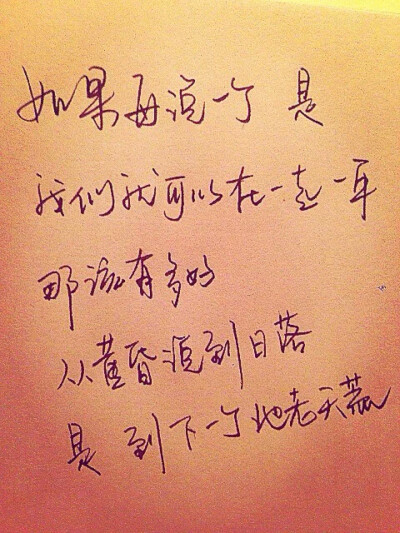 如果再说一个 是
我们就可以在一起一年
那该有多好
从黄昏说到日落
是 到下一个地老天荒